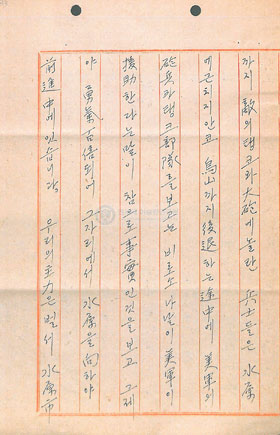 까지 敵의 탱크와 大砲에 놀란 兵士들은 水原
에 근치지 안코 烏山까지 後退하는 途中에 美軍의
砲兵과 탱크部隊를 보고는 비로소 나날이 美軍이
援助한다는 말이 참으로 事實인 것을 보고 그제
야 勇氣百倍되어 그 자리에서 水原을 向하야
前進中에 잇슴니다. 우리의 主力은 벌서 水原市